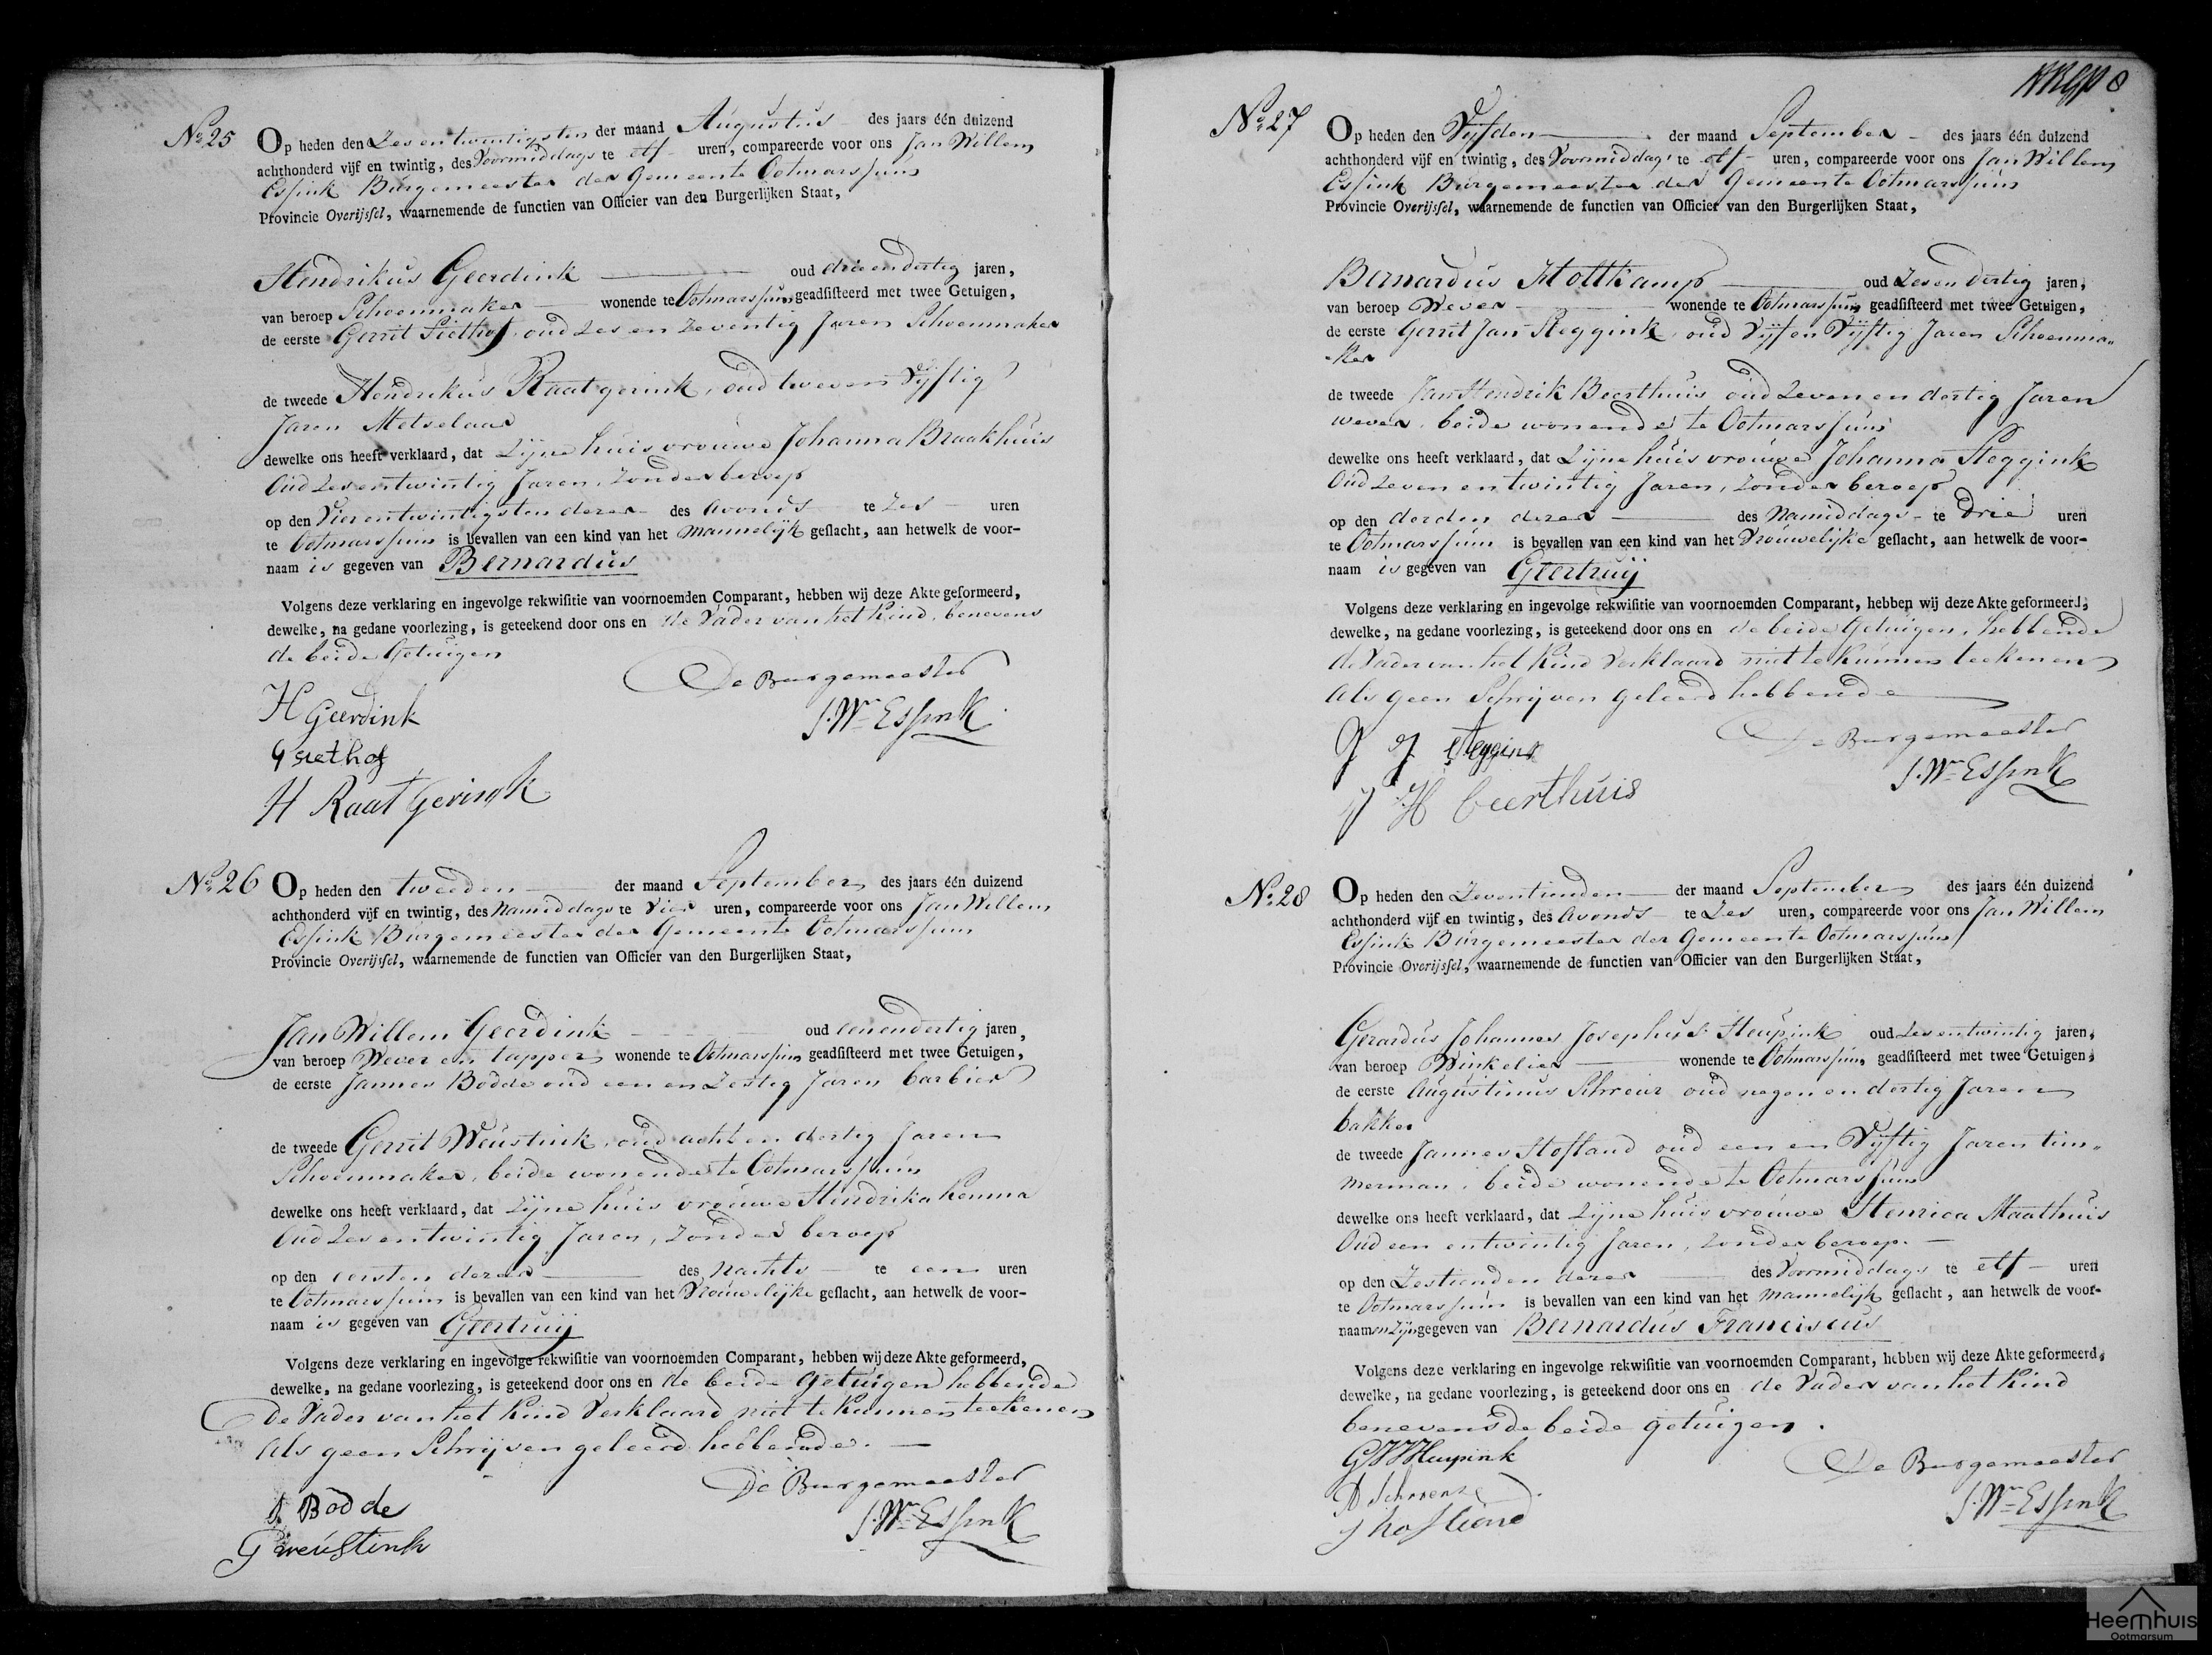 No. 25
Op heden den Zesentwintigsten der maand Augustus des jaars één duizend
achthonderd vijf en twintig, des Voormiddags te elf uren, compareerde voor ons Jan Willem
Essink Burgemeester der Gemeente Ootmarssum
Provincie Overijssel, waarnemende de functien van Officier van den Burgerlijken Staat,
Hendrikus Geerdink oud drieendertig jaren,
van beroep Schoenmaker wonende te Ootmarssum geadsisteerd met twee Getuigen,
de eerste Gerrit Siethof, oud Zes en Zeventig Jaren Schoenmaker
de tweede Hendrikus Raatgerink, oud twee en Vijftig
Jaren Metselaar
dewelke ons heeft verklaard, dat Zijne huisvrouwe Johanna Braakhuis
Oud Zesentwintig Jaren, Zonder beroep
op den Vierentwintigsten dezer des Avonds te Zes uren
te Ootmarssum is bevallen van een kind van het Mannelijk geslacht, aan hetwelk de voor-
naam is gegeven van Bernardus
Volgens deze verklaring en ingevolge rekwisitie van voornoemden Comparant, hebben wij deze Akte geformeerd,
dewelke, na gedane voorlezing, is geteekend door ons en de Vader van het Kind, benevens
de beide Getuigen
De Burgemeester
H Geerdink
J. Wm Essink
G siethof
H Raat Gerink
No. 26
Op heden den tweeden der maand September des jaars één duizend
achthonderd vijf en twintig, des Namiddags te Vier uren, compareerde voor ons Jan Willem
Essink Burgemeester der Gemeente Ootmarssum
Provincie Overijssel, waarnemende de functien van Officier van den Burgerlijken Staat,
Jan Willem Geerdink oud eenendertig jaren,
van beroep Wever en tapper wonende te Ootmarssum geadsisteerd met twee Getuigen,
de eerste Jannes Bodde oud een en Zestig Jaren barbier
de tweede Gerrit Weustink, oud acht en dertig Jaren
Schoenmaker, beide wonende te Ootmarssum
dewelke ons heeft verklaard, dat Zijne huisvrouwe Hendrika Kemna
Oud Zesentwintig Jaren, Zonder beroep
op den eersten dezer des Nachts te een uren
te Ootmarssum is bevallen van een kind van het Vrouwelijke geslacht, aan hetwelk de voor-
naam is gegeven van Geertruij
Volgens deze verklaring en ingevolge rekwisitie van voornoemden Comparant, hebben wij deze Akte geformeerd,
dewelke, na gedane voorlezing, is geteekend door ons en de beide Getuigen hebbende
De Vader van het Kind Verklaard niet te Kunnen teekenen
Als geen Schrijven geleerd hebbende.
De Burgemeester
J Bodde
J. Wm Essink
G weustink
No. 27
Op heden den Vijfden der maand September des jaars één duizend
achthonderd vijf en twintig, des Voormiddags te elf uren, compareerde voor ons Jan Willem
Essink Burgemeester der Gemeente Ootmarssum
Provincie Overijssel, waarnemende de functien van Officier van den Burgerlijken Staat,
Bernardus Holtkamp oud Zesendertig jaren,
van beroep Wever wonende te Ootmarssum geadsisteerd met twee Getuigen,
de eerste Gerrit Jan Steggink, oud Vijf en Vijftig Jaren Schoenma„
„ker
de tweede Jan Hendrik Beerthuis oud Zeven en dertig Jaren
wever, beide wonende te Ootmarssum
dewelke ons heeft verklaard, dat Zijne huisvrouwe Johanna Steggink
Oud Zeven en twintig Jaren, Zonder beroep
op den derden dezer des Namiddags te Drie uren
te Ootmarssum is bevallen van een kind van het Vrouwelijke geslacht, aan hetwelk de voor-
naam is gegeven van Geertruij
Volgens deze verklaring en ingevolge rekwisitie van voornoemden Comparant, hebben wij deze Akte geformeerd,
dewelke, na gedane voorlezing, is geteekend door ons en de beide Getuigen, hebbende
de Vader van het Kind Verklaard niet te Kunnen teekenen
Als geen Schrijven geleerd hebbende
De Burgemeester
G J Steggink
J. Wm Essink
J H beerthuis
No. 28
Op heden den Zeventienden der maand September des jaars één duizend
achthonderd vijf en twintig, des Avonds te Zes uren, compareerde voor ons Jan Willem
Essink Burgemeester der Gemeente Ootmarssum
Provincie Overijssel, waarnemende de functien van Officier van den Burgerlijken Staat,
Gerardus Johannes Josephus Heupink oud Zesentwintig jaren,
van beroep Winkelier wonende te Ootmarssum geadsisteerd met twee Getuigen,
de eerste Augustinus Schreur oud negen en dertig Jaren
bakker
de tweede Jannes Hofland oud een en Vijftig Jaren tim„
merman, beide wonende te Ootmarssum
dewelke ons heeft verklaard, dat Zijne huisvrouwe Henrica Maathuis
Oud een entwintig Jaren, Zonder beroep.
op den Zestienden dezer des Voormiddags te elf uren
te Ootmarssum is bevallen van een kind van het Mannelijk geslacht, aan hetwelk de voor-
naamen Zijn gegeven van Bernardus Franciscus
Volgens deze verklaring en ingevolge rekwisitie van voornoemden Comparant, hebben wij deze Akte geformeerd,
dewelke, na gedane voorlezing, is geteekend door ons en de Vader van het Kind
benevens de beide getuigen.
De Burgemeester
GJJHeupink
J. Wm Essink
J hofland
Heemhuis
Ootmarsum